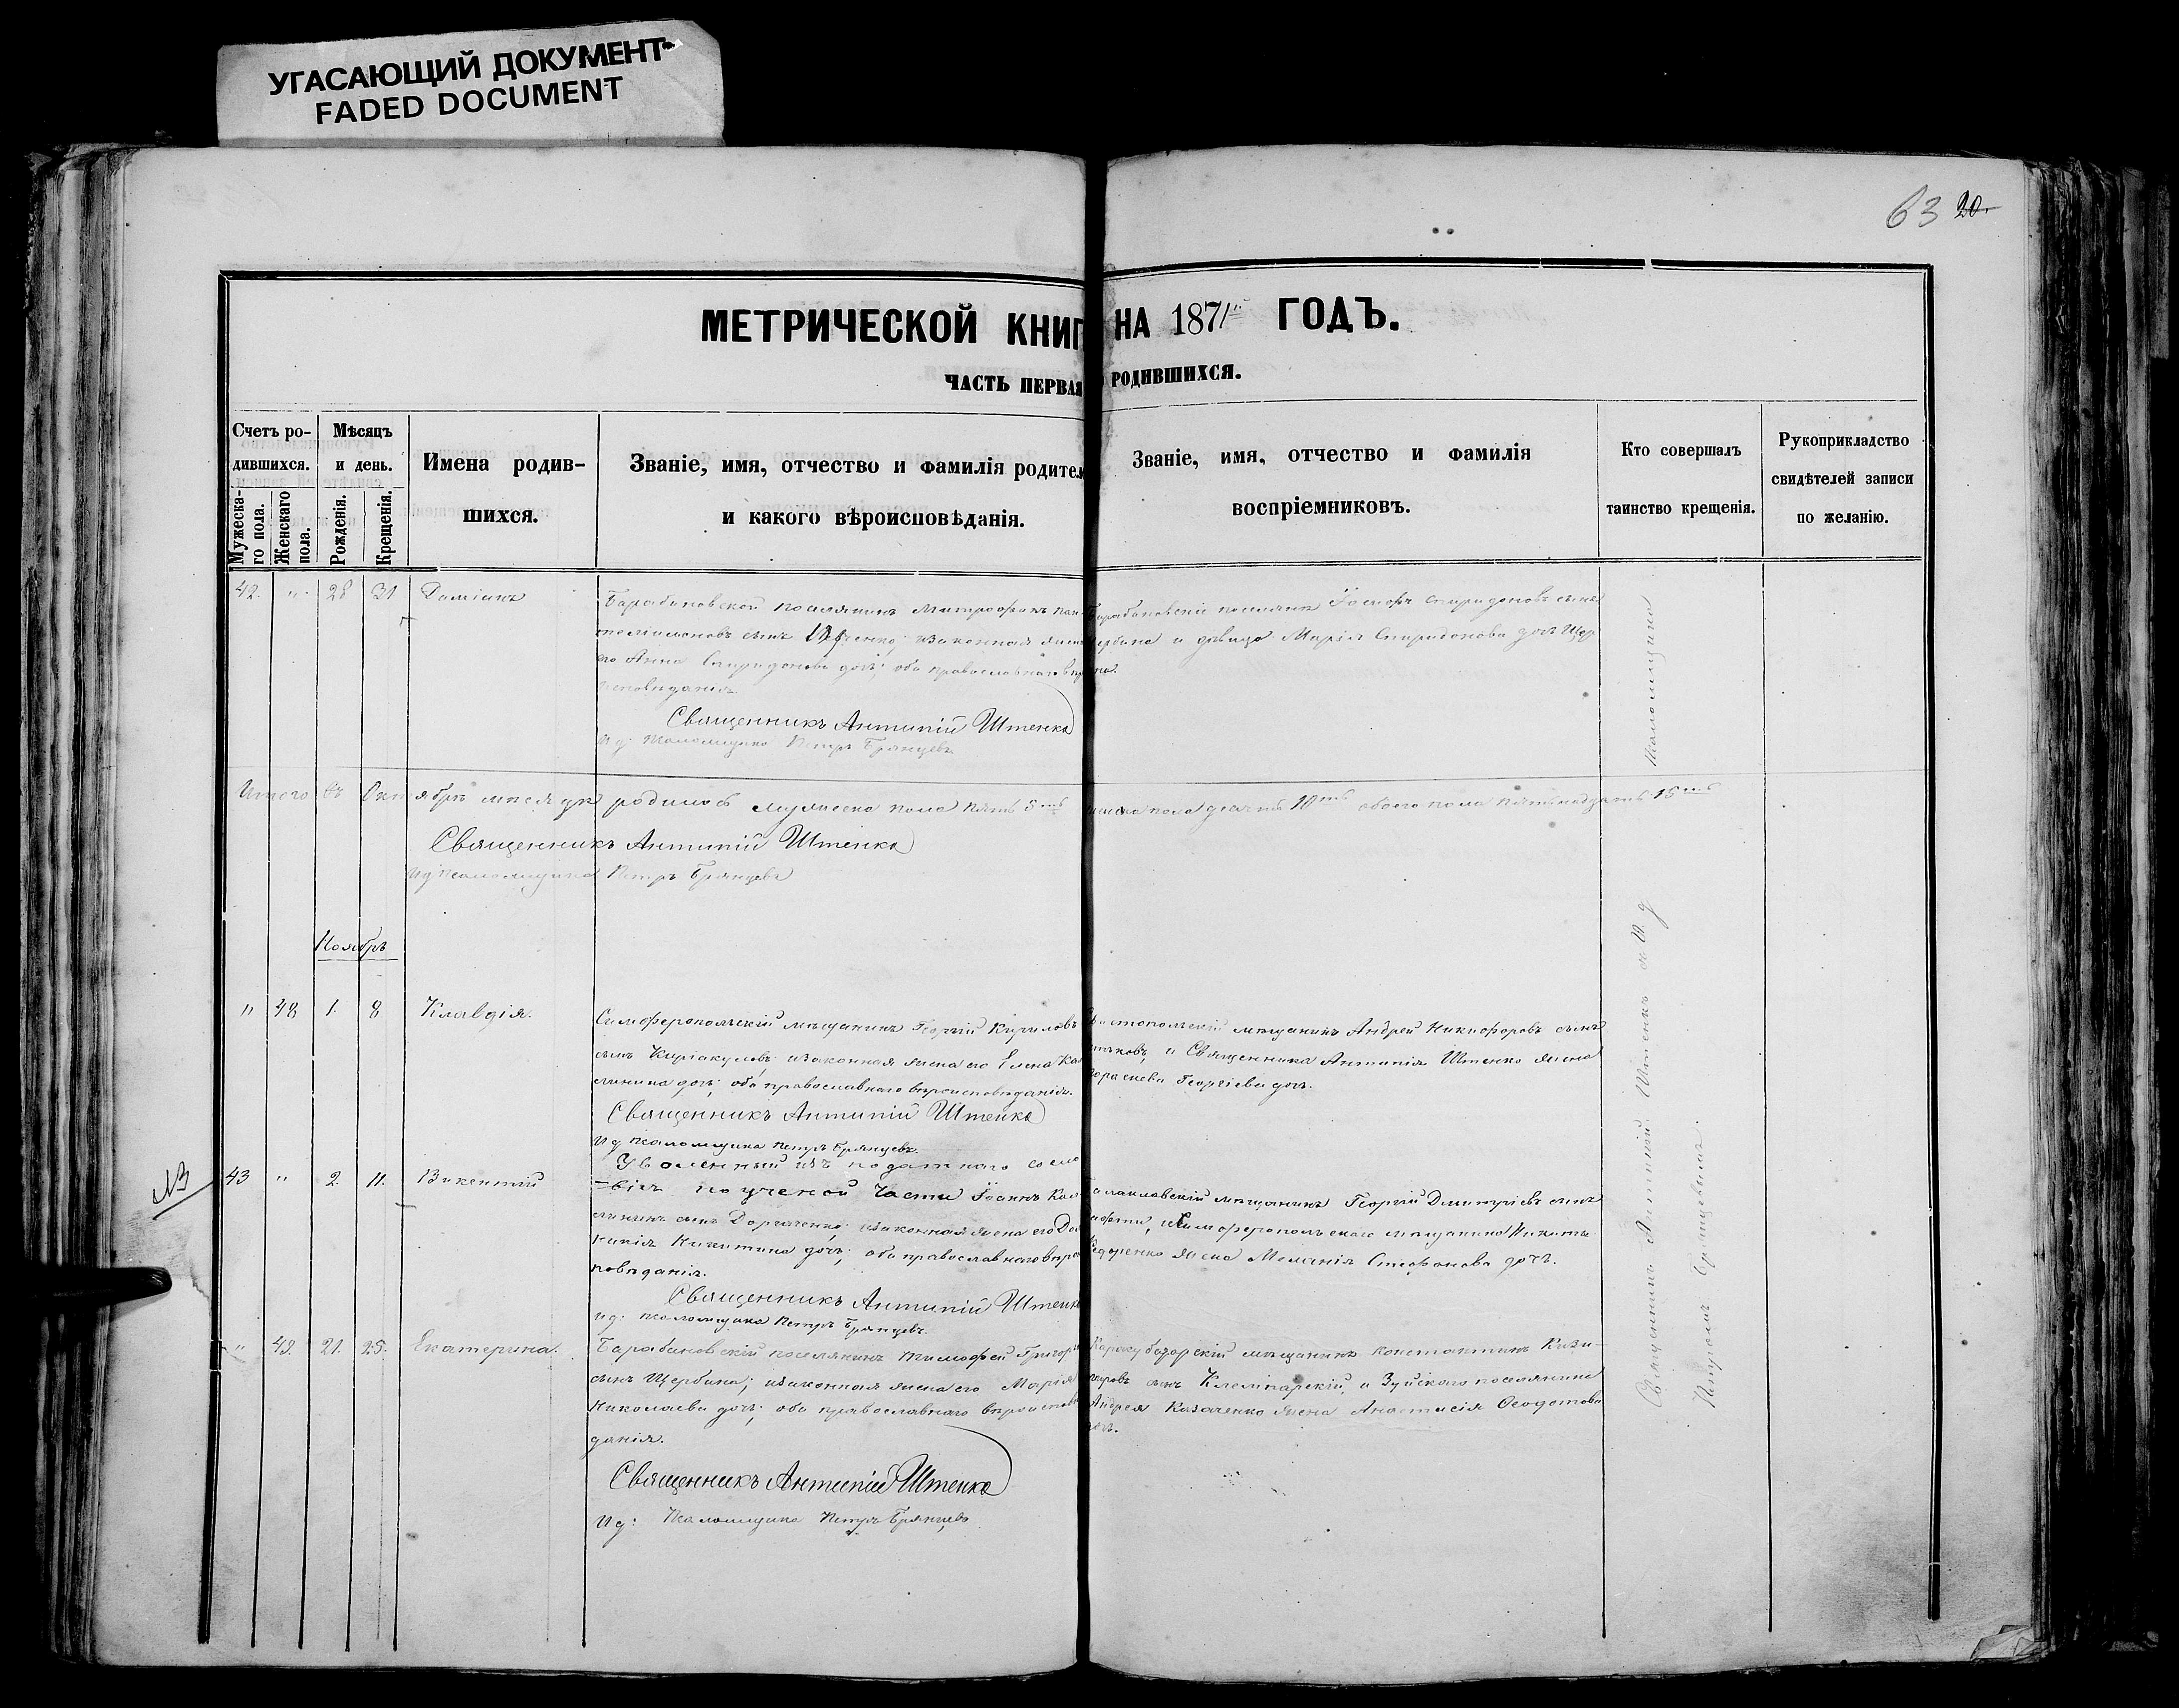 УГАСАЮЩИЙ ДОКУМЕНТ
FADED DOCUMENT
63 20.
МЕТРИЧЕСКОЙ КНИГ НА 1871 ГОДЪ.
ЧАСТЬ ПЕРВАЯ РОДИВШИХСЯ.
Счетъ ро-
дившихся.
Мужеска-
го пола.
Женскаго
пола.
Мѣсяцъ
и день.
Рожденія.
Крещенія.
Имена родив-
шихся.
Званіе, имя, отчество и фамилія родител
и какого вѣроисповѣданія.
Званіе, имя, отчество и фамилія
воспріемниковъ.
Кто совершалъ
таинство крещенія.
Рукоприкладство
свидѣтелей записи
по желанію.
42. " 28 31 Даміанъ
Барабановской поселянинъ Митрофанъ Пан-
телімоновъ сынъ законная жен
его Анна Спиридонова дочь; оба православнаго вѣро
исповѣданія.
Священникъ Антипій Штенко
И д: Псаломщика Петръ Брянцевъ
Барабановскіе поселяне Іосифъ Спиридоновъ сынъ
Щербина и дѣвица Марія Спиридонова дочь Щер
бина.
Итого въ Октябрѣ мѣсяцѣ родилось мужеска пола пять 5ть женска пола десять 10ть обоего пола пятнадцать 15ть
Священникъ Антипій Штенко
И д Псаломщика Петръ Брянцевъ
Ноябрь
" 48 1. 8 Клавдія.
Симферопольскій мѣщанинъ Георгій Кириловъ
сынъ Киріакуловъ; и законная жена его Елена Ка
линина дочь; оба православнаго вѣроисповѣданія.
Священникъ Антипій Штенко
И д Псаломщика Петръ Брянцевъ.
мѣщанинъ Андрей Никифоровъ сынъ
и Священника Антипія Штенко жена
Георгіева дочь.
NB
43 " 2. 11. Викентій
Уволенный изъ податнаго сосло
=вія по ученой части Іоаннъ Кал
линикъ сынъ Дорченко; и законная жена его
Никитина дочь; оба православнаго вѣрои
повѣданія.
Священникъ Антипій Штенко
И д: Псаломщика Петръ Брянцевъ.
Балаклавскій мѣщанинъ Георгій Дмитріевъ сынъ
и Симферопольскаго мѣщанина Никиты
Федоренко жена Меланія Стефанова дочь.
" 49. 21. 25. Екатерина.
Барабановскій поселянинъ Тимофей Григорь
сынъ Щербина; и законная жена его Марія
Николаева дочь; оба православнаго вѣроисповѣ
данія.
Священникъ Антипій Штенко
И д: Псаломщика Петръ Брянцевъ
Карасубазарскій мѣщанинъ Константинъ Кази-
міровъ сынъ и Зуйскаго поселянина
Андрея Казаченко жена Анастасія Ѳеодотова
дочь.
Священникъ Антипій Штенко съ И. д
Псаломщика
Петромъ Брянцевымъ.